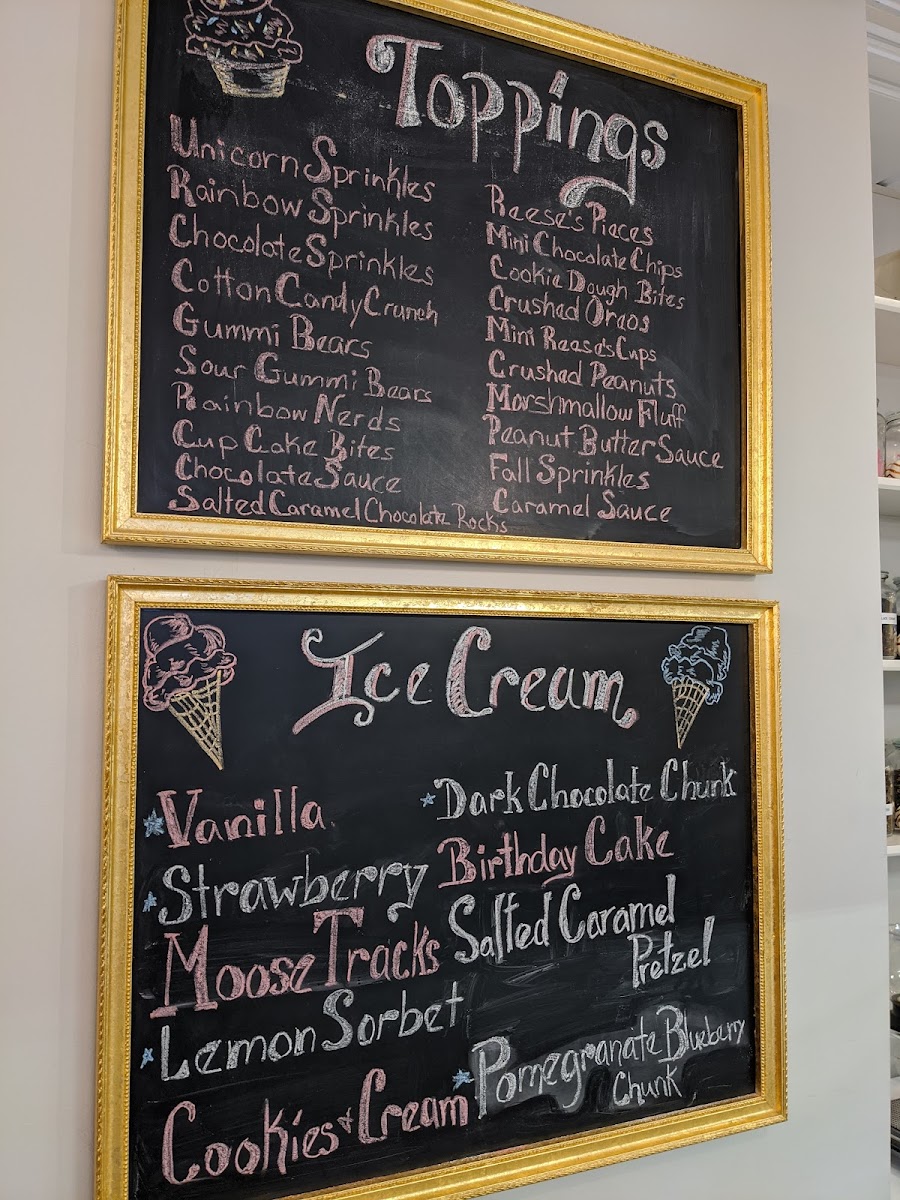 Toppings
Unicorn Sprinkles
Rainbow Sprinkles
Chocolate Sprinkles
Cotton Candy Crunch
Gummi Bears
Sour Gummi Bears
Rainbow Nerds
Cup Cake Bites
Chocolate Sauce
Salted Caramel Chocolate Rocks
Reese's Pieces
Mini Chocolate Chips
Cookie Dough Bites
Crushed Oreos
Mini Reese's Cups
Crushed Peanuts
Marshmallow Fluff
Peanut Butter Sauce
Fall Sprinkles
Caramel Sauce
Ice Cream
Vanilla
Strawberry
Moose Tracks
Lemon Sorbet
Cookies & Cream
Dark Chocolate Chunk
Birthday Cake
Salted Caramel
Pretzel
Pomegranate Blueberry
Chunk